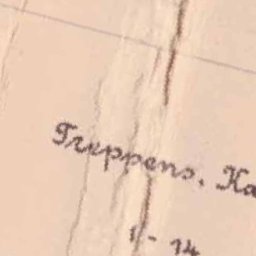 Treppens. Ka
1 - 14